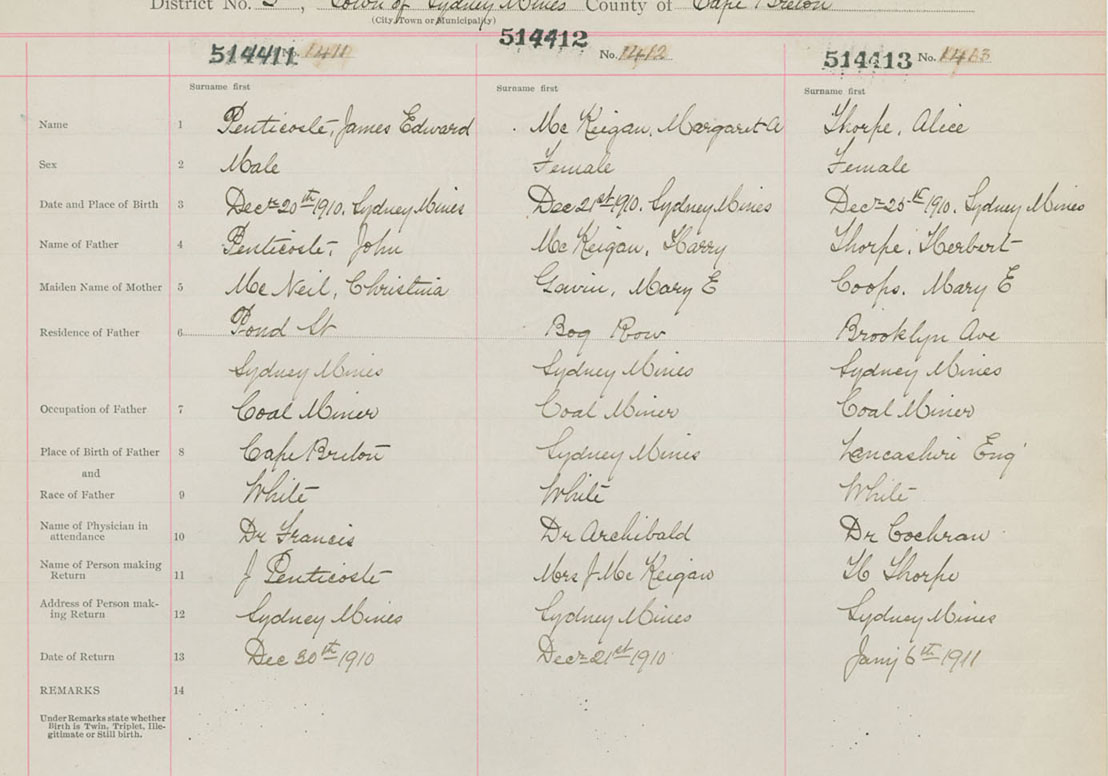 District No. 3, Town of Sydney Mines County of Cape Breton
(City, Town or Municipality)
514411 No. 1411 514412 No. 1412 514413 No. 1413
Surname first Surname first Surname first
Name 1 Penticoste, James Edward Mc Keigan, Margaret A Thorpe, Alice
Sex 2 Male Female Female
Date and Place of Birth 3 Decr 20th 1910. Sydney Mines Dec 21st 1910. Sydney Mines Decr 25th 1910. Sydney Mines
Name of Father 4 Penticoste, John Mc Keigan, Harry Thorpe, Herbert
Maiden Name of Mother 5 Mc Neil, Christina Gavin, Mary E Coops. Mary E
Residence of Father 6 Pond St Bog Row Brooklyn Ave
Sydney Mines Sydney Mines Sydney Mines
Occupation of Father 7 Coal Miner Coal Miner Coal Miner
Place of Birth of Father 8 Cape Breton Sydney Mines Lencashire Eng
and
Race of Father 9 White White White
Name of Physician in
attendance 10 Dr Francis Dr Archibald Dr Cochran
Name of Person making
Return 11 J Penticoste Mrs J Mc Keigan H Thorpe
Address of Person mak-
ing Return 12 Sydney Mines Sydney Mines Sydney Mines
Date of Return 13 Dec 30th 1910 Decr 21st 1910 Jany 6th 1911
REMARKS 14
Under Remarks state whether
Birth is Twin, Triplet, Ille-
gitimate or Still birth.